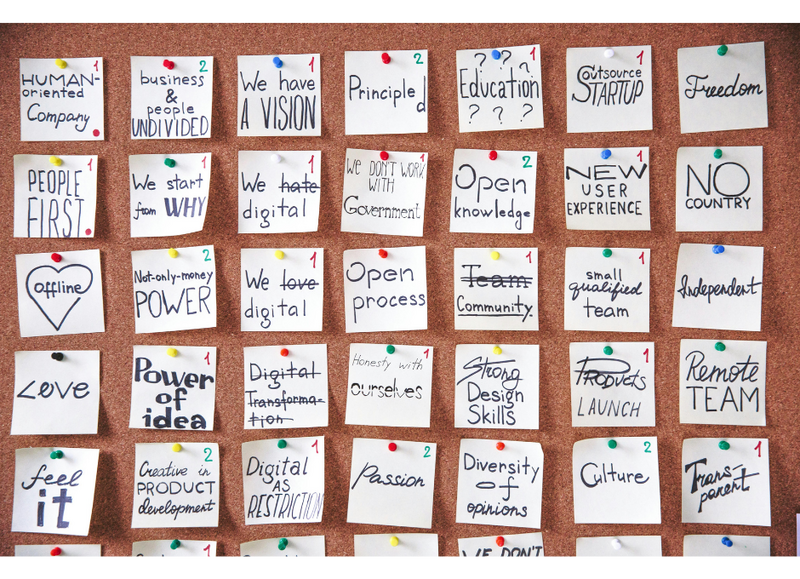 1
HUMAN-
oriented
Company
2
business
&
people
UNDIVIDED
1
We have
A VISION
2
Principled
1
? ? ?
Education
? ? ?
1
Outsource
STARTUP
Freedom
1
PEOPLE
FIRST.
1
We start
from WHY
1
We hate
digital
1
We DON'T WORK
WITH
Government
2
Open
knowledge
1
NEW
USER
EXPERIENCE
NO
COUNTRY
offline
2
Not-only-money
POWER
1
We love
digital
Open
process
Team
Community.
1
small
qualified
team
Independent
Love
1
Power
of
idea
Digital
Transforma-
tion
1
Honesty with
ourselves
Strong
Design
Skills
1
Products
LAUNCH
Remote
TEAM
feel
it
2
Creative in
PRODUCT
development
1
Digital
AS
RESTRICTION
2
Passion
Diversity
of
opinions
2
Culture
1
Trans-
parent
1
WE DON'T